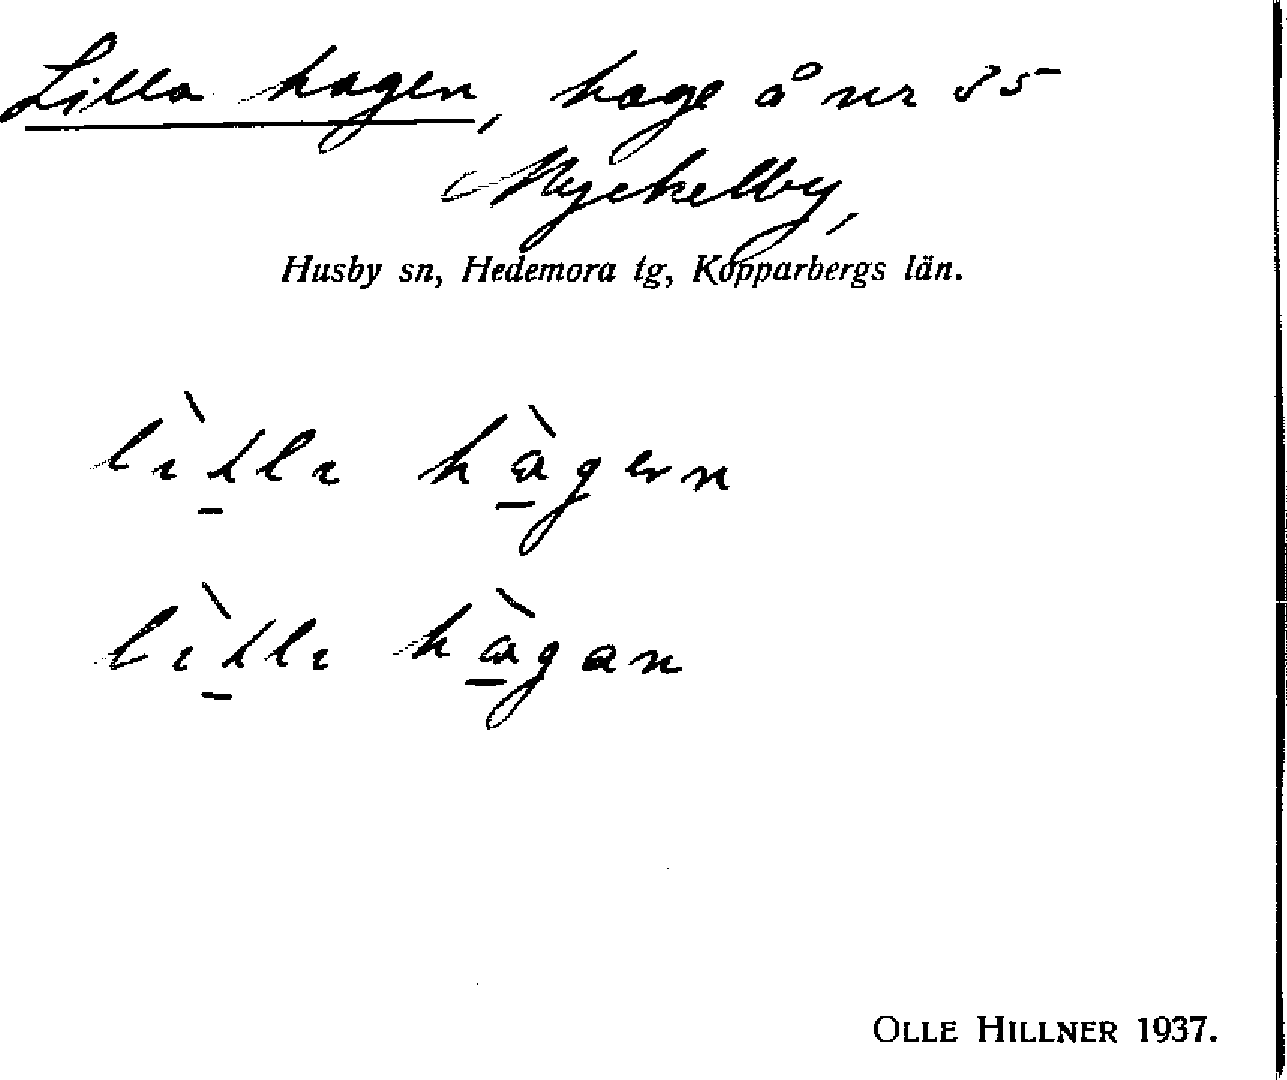 Lilla hagen, hage å nr 35
Myckelby,
Husby sn, Hedemora tg, Kopparbergs län.
lìlle hàgen
lìlle hàgan
OLLE HILLNER 1937.